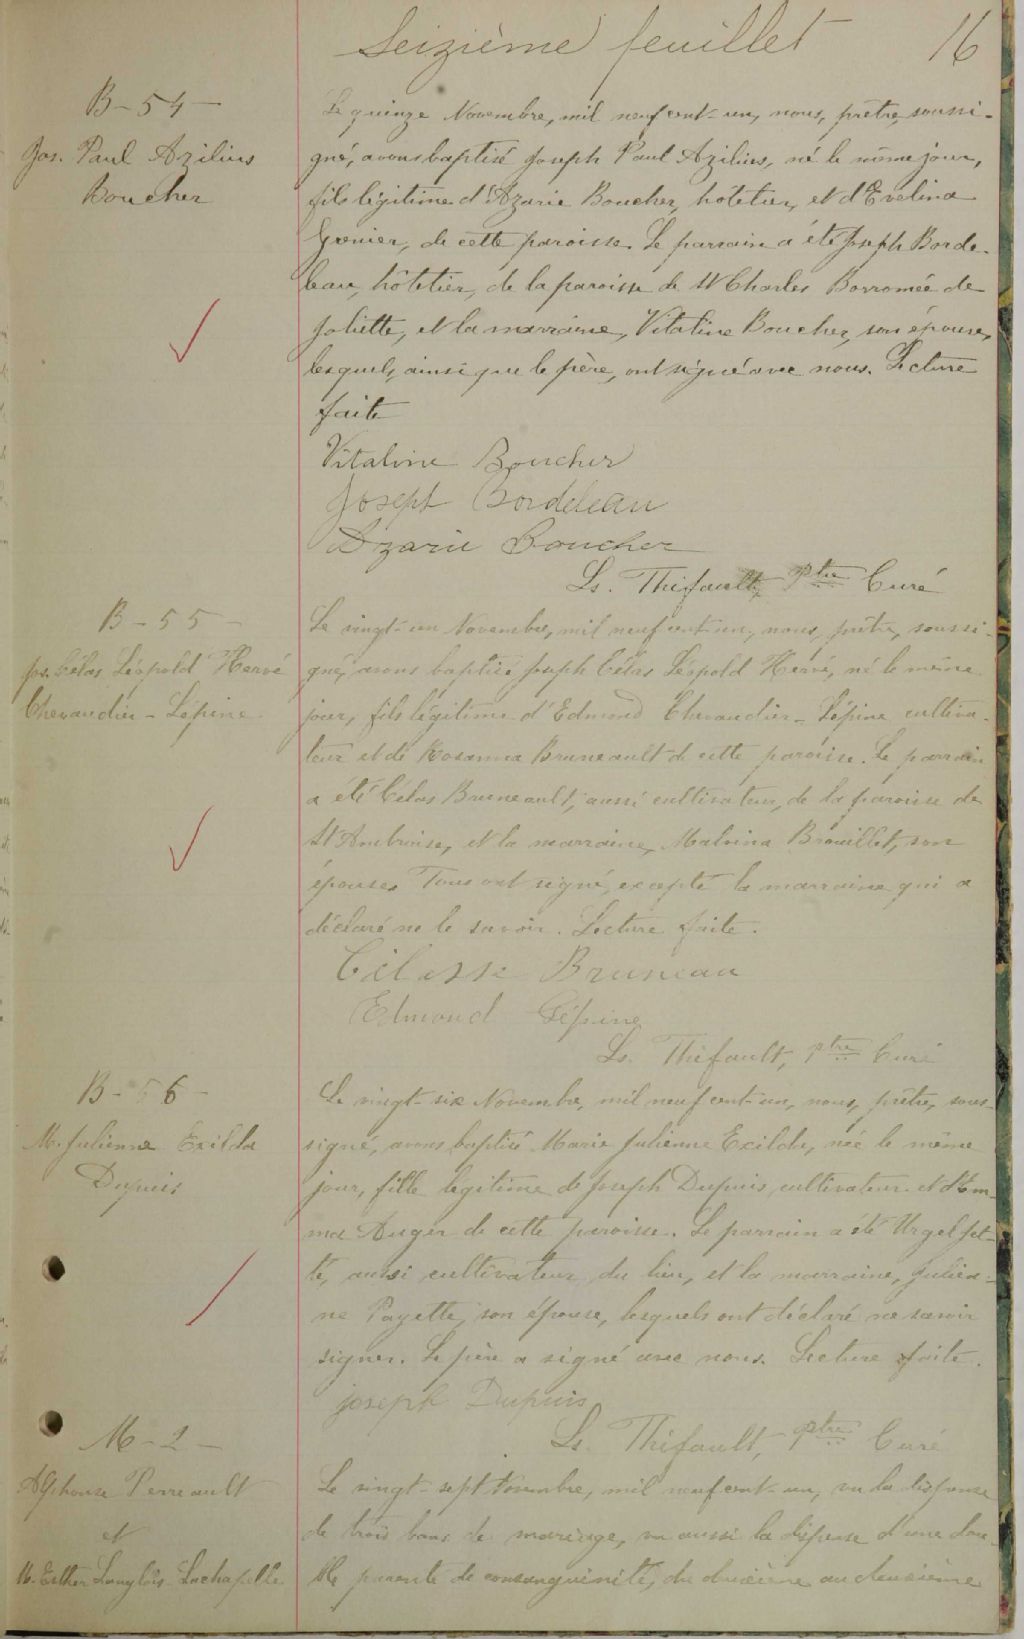 Seizième feuillet 16
B-54-
Jos. Paul Azilius
Boucher
Le quinze Novembre, mil neuf cent-un, nous, prêtre, soussi-
gné, avons baptisé Joseph Paul Azilius, né le même jour,
fils légitime d'Azarie Boucher, hôtelier, et d'Evelina
Grenier, de cette paroisse. Le parrain a été Joseph Borde-
leau, hôtelier, de la paroisse de St Charles Borromée de
Joliette, et la marraine, Vitaline Boucher, son épouse,
lesquels, ainsi que le père, ont signé avec nous. Lecture
faite
Vitaline Boucher
Joseph Bordeleau
Azarie Boucher
Ls. Thifault, Ptre Curé
B-55-
Jos. Célas Léopold Hervé
Chevaudier-Lépine
Le vingt-un Novembre, mil neuf cent-un, nous, prêtre, soussi-
gné, avons baptisé Joseph Célas Léopold Hervé, né le même
jour, fils légitime d'Edmond Chevaudier-Lépine cultiva-
teur et de Rosanna Bruneault de cette paroisse. Le parrain
a été Célas Bruneault, aussi cultivateur, de la paroisse de
St Ambroise, et la marraine, Malvina Brouillet, son
épouse. Tous ont signé, excepté la marraine qui a
déclaré ne le savoir. Lecture faite.
Célasse Bruneau
Edmond Lépine
Ls. Thifault, Ptre Curé
B-56-
M. Julienne Exilda
Dupuis
Le vingt-six Novembre, mil neuf cent-un, nous, prêtre, sous-
signé, avons baptisé Marie Julienne Exilda, née le même
jour, fille légitime de Joseph Dupuis, cultivateur et d'Em-
ma Auger de cette paroisse. Le parrain a été Urgel
aussi cultivateur du lieu, et la marraine, Julien-
ne Payette, son épouse, lesquels ont déclaré ne savoir
signer. Le père a signé avec nous. Lecture faite.
Joseph Dupuis
Ls. Thifault, Ptre Curé
M-2-
Alphonse Perreault
et
M. Esther Langlois-Lachapelle
Le vingt-sept Novembre, mil neuf cent-un, vu la dispense
de trois bans de mariage, vu aussi la dispense d'une dou-
ble parenté de consanguinité, du deuxième au deuxième